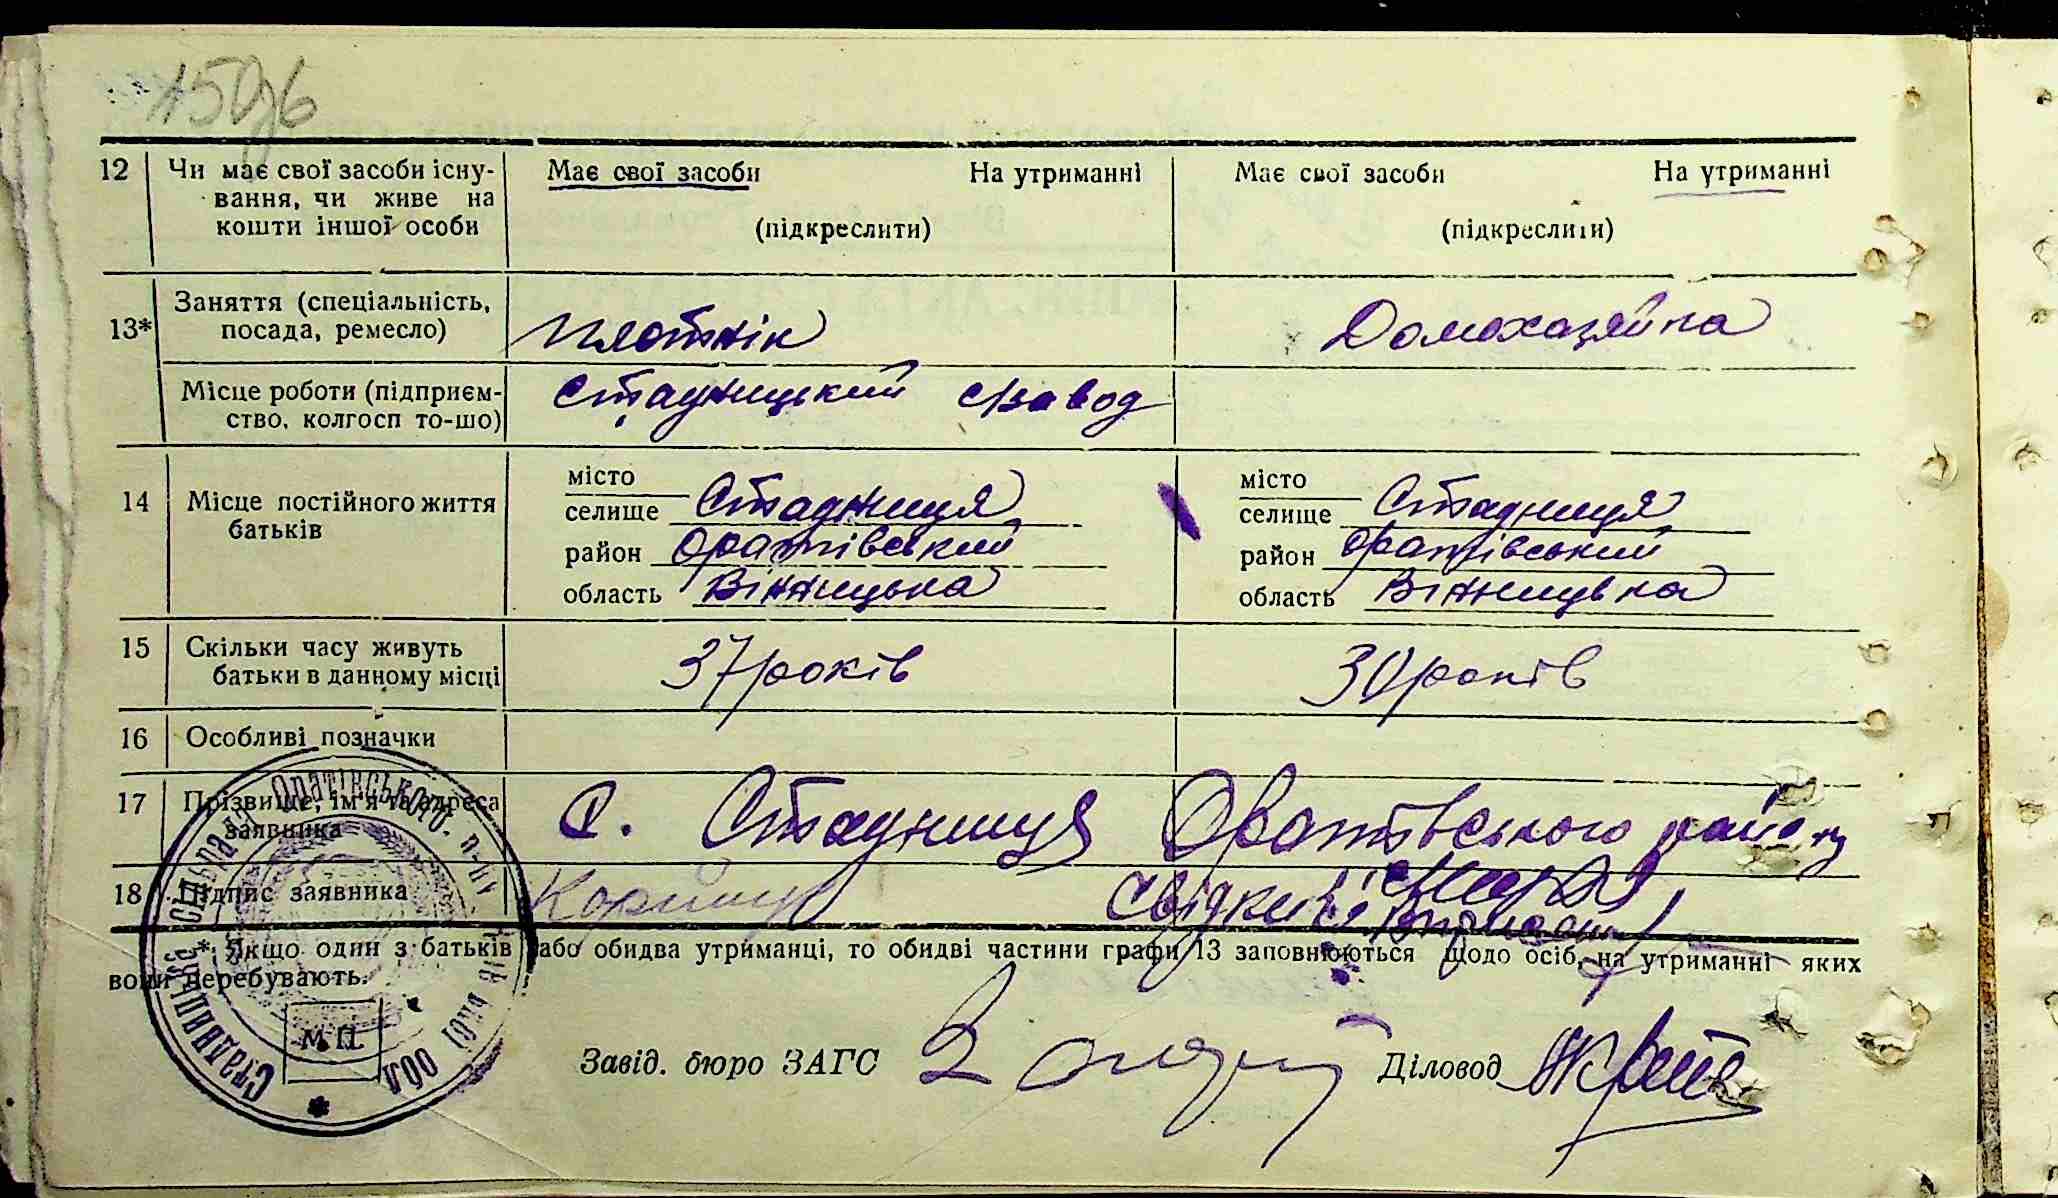 12 Чи має свої засоби існу-
вання, чи живе на
кошти іншої особи
Має свої засоби На утриманні
(підкреслити)
Має свої засоби На утриманні
(підкреслити)
13* Заняття (спеціальність,
посада, ремесло)
плотнік
Домохазяйка
Місце роботи (підприєм-
ство, колгосп то-що)
Стадницький с/завод
14 Місце постійного життя
батьків
місто
селище Стадниця
район Оратівський
область Вінницька
місто
селище Стадниця
район Оратівський
область Вінницька
15 Скільки часу живуть
батьки в данному місці
37 років
30 років
16 Особливі позначки
17 Прізвище, ім'я та адреса
заявника
с. Стадниця Оратівського району
18 Підпис заявника
свідки
* Якщо один з батьків або обидва утриманці, то обидві частини графи 13 заповнюються щодо осіб, на утриманні яких
вони перебувають.
Стадницька сільрада Оратівського р-ну обл
М.П.
Завід. бюро ЗАГС
Діловод